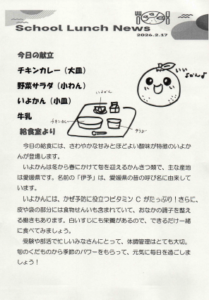 School Lunch News
2026.2.17
今日の献立
チキンカレー（大皿）
野菜サラダ（小わん）
いよかん（小皿）
牛乳
給食室より
今日の給食には、さわやかな甘みとほどよい酸味が特徴のいよか
んが登場します。
いよかんは冬から春にかけて旬を迎えるかんきつ類で、主な産地
は愛媛県です。名前の「伊予」は、愛媛県の昔の呼び名に由来して
います。
いよかんには、かぜ予防に役立つビタミンＣがたっぷり！さらに、
皮や袋の部分には食物せんいも含まれていて、おなかの調子を整え
る働きもあります。白いすじにも栄養があるので、できるだけ一緒
に食べてみましょう。
受験や部活で忙しいみなさんにとって、体調管理はとても大切。
旬のくだものから季節のパワーをもらって、元気に毎日を過ごしま
しょう！